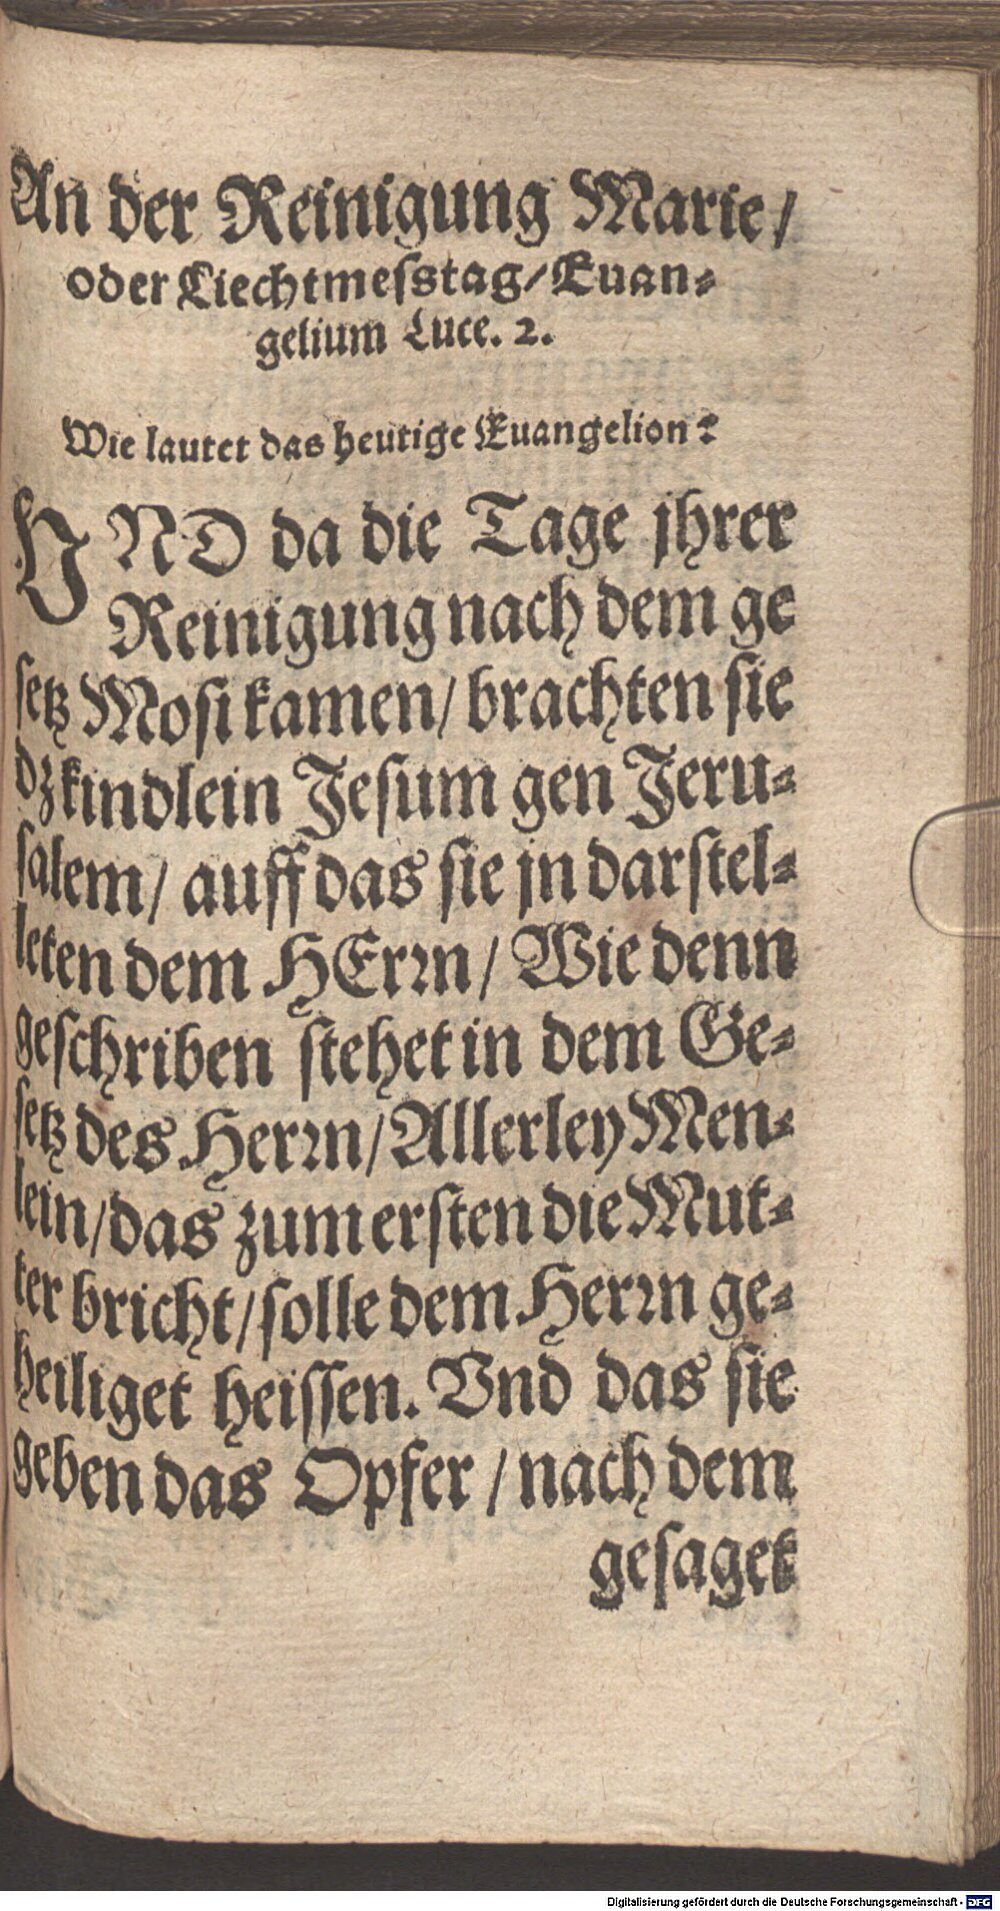 An der Reinigung Marie/
oder Liechtmeſstag/ Euan⸗
gelium Luce. 2.
Wie lautet das heutige Euangelion?
VND da die Tage jhrer
Reinigung nach dem ge
ſetz Moſi kamen/ brachten ſie
dz kindlein Jeſum gen Jeru⸗
ſalem/ auff das ſie jn darſtel⸗
leten dem HErꝛn/ Wie denn
geſchriben ſtehet in dem Ge⸗
ſetz des Herꝛn/ Allerley Men⸗
lein/ das zum erſten die Mut⸗
ter bricht/ ſolle dem Herꝛn ge⸗
heiliget heiſſen. Vnd das ſie
geben das Opfer / nach dem
geſaget
Digitalisierung gefördert durch die Deutsche Forschungsgemeinschaft - DFG